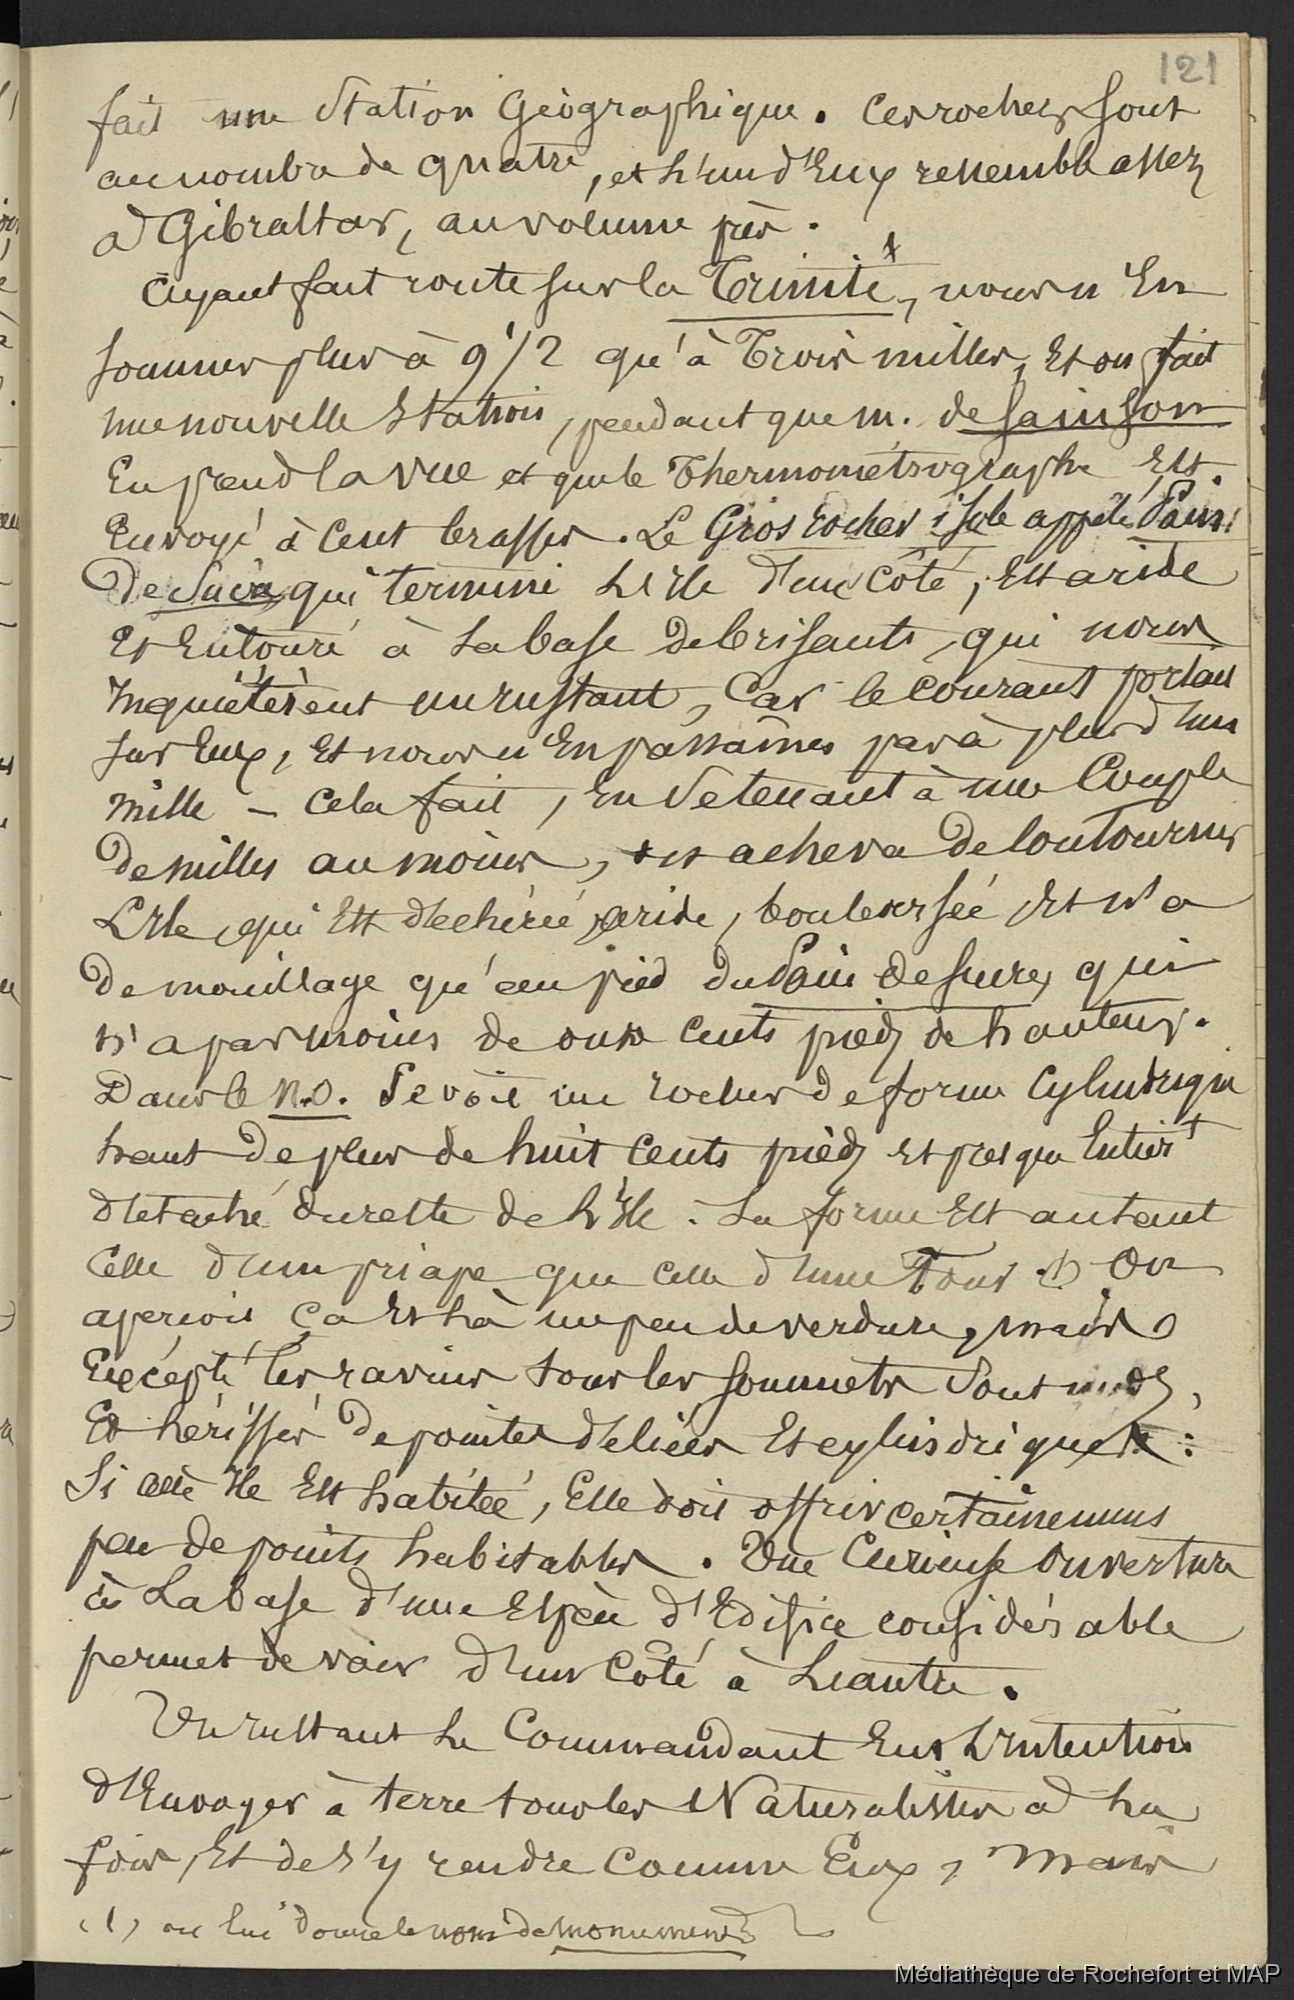 121
fait une station Géographique. Ces rochers sont
au nombre de quatre, et l'un d'Eux ressemble assez
à Gibraltar, au volume près.
Ayant fait route sur la Trinité, nous n'En
sommes plus à 9 1/2 qu'à Trois milles, Et on fait
une nouvelle station, pendant que m. de Sainson
En prend la vue et que le Thermométrographe Est
Envoyé à Cent brasses. Le Gros rocher isolé appelé Pain
de Sucre, qui termine L'Ile d'un Côté, Est aride
Et Entouré à sa base de brisants, qui nous
Inquiétèrent un instant, Car le courant portait
sur Eux, Et nous n'En passâmes pas à plus d'un
mille — Cela fait, En se tenant à une Couple
de milles au moins, on acheva de Contourner
L'Ile, qui Est déchirée, aride, bouleversée Et n'a
de mouillage qu'au pied du Pain de Sucre, qui
n'a pas moins de onze cents pieds de hauteur.
Dans le N.O. se voit un rocher de forme Cylindrique
haut de plus de huit cents pieds et presqu'Entiert
détaché du reste de L'Ile. Sa forme Est autant
Celle d'un priape que celle d'une Tour (1) On
aperçoit Ça Et Là un peu de verdure, mais
Excepté les ravins tous les sommets sont nuds,
Et hérissés de pointes déliées Et cylindriques:
Si cette Ile Est habitée, Elle doit offrir certainement
peu de points habitables. Une Curieuse Ouverture
à La base d'une Espèce d'Edifice considérable
permet de voir d'un Côté à L'autre.
Un instant Le Commandant Eut L'Intention
d'Envoyer à terre tous les Naturalistes à La
fois, Et de s'y rendre comme Eux, Mais
(1) on lui donne le nom de monument
Médiathèque de Rochefort et MAP